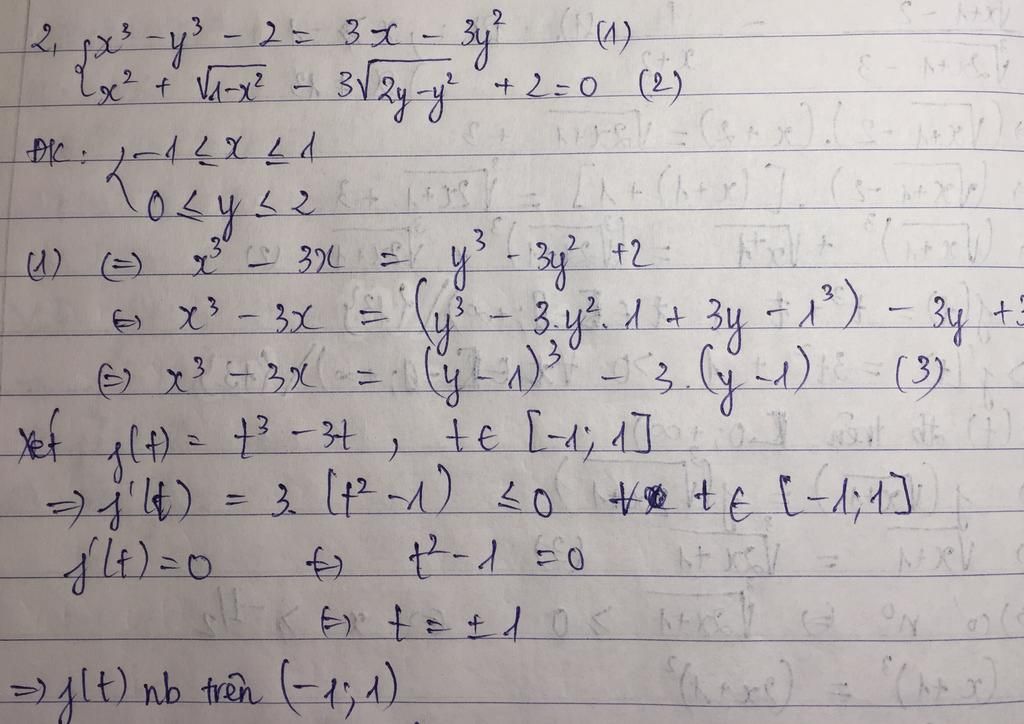 2, { x³ - y³ - 2 = 3x - 3y² (1)
x² + √(1-x²) - 3√(2y-y²) + 2 = 0 (2)
ĐK: { -1 ≤ x ≤ 1
0 ≤ y ≤ 2
(1) ⇔ x³ - 3x = y³ - 3y² + 2
⇔ x³ - 3x = (y³ - 3.y².1 + 3y - 1³) - 3y + 3
⇔ x³ - 3x = (y-1)³ - 3.(y-1) (3)
Xét f(t) = t³ - 3t, t ∈ [-1; 1]
⇒ f'(t) = 3.(t² - 1) ≤ 0 ∀ t ∈ [-1; 1]
f'(t) = 0 ⇔ t² - 1 = 0
⇔ t = ±1
⇒ f(t) nb trên (-1; 1)